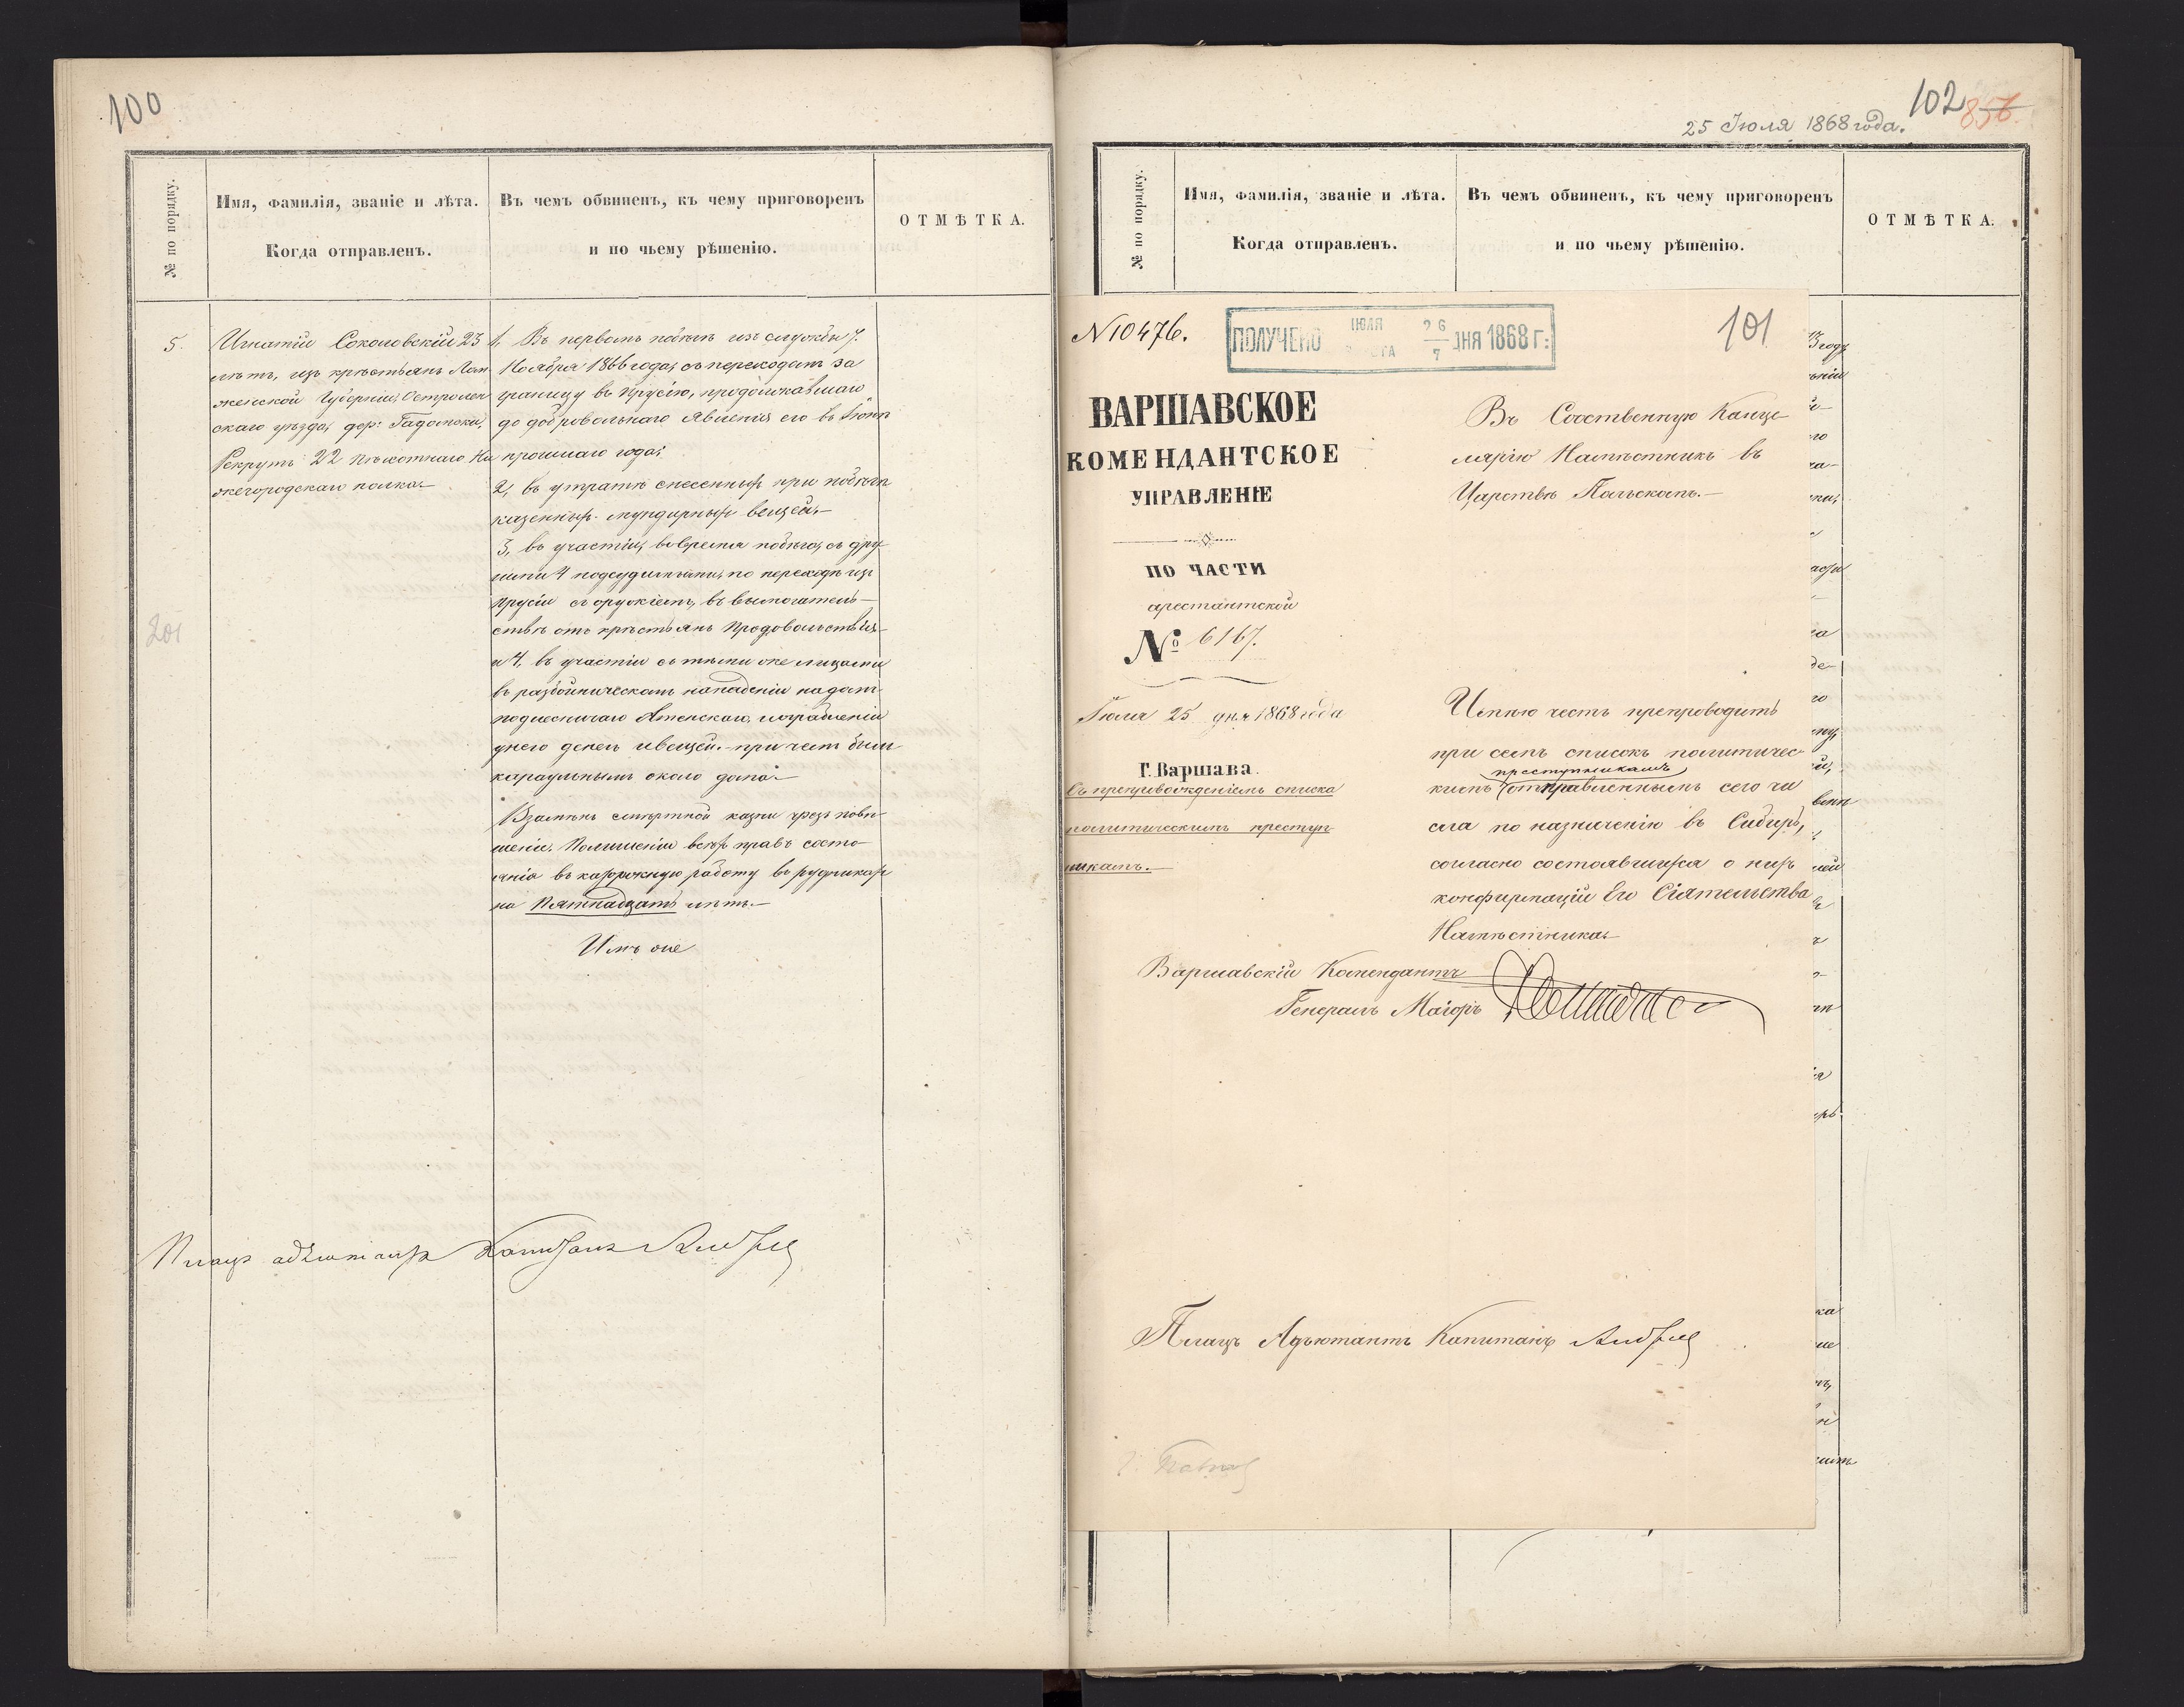 100
№ по порядку.
Имя, фамилія, званіе и лѣта.
Когда отправленъ.
Въ чемъ обвиненъ, къ чему приговоренъ
и по чьему рѣшенію.
ОТМѢТКА.
5.
Игнатій Соколовскій 23
лѣтъ, изъ крѣстьянъ Лом
жинской Губерніи, Остролен
скаго уѣзда, дер:
Рекрутъ 22 пѣхотнаго Ни
жегородскаго полка.—
1, Въ первомъ побѣгѣ изъ службы 7.
Ноября 1866 года, съ переходомъ за
границу въ Прусію, продолжавшаго
до добровольнаго явленія его въ Іюнѣ
прошлаго года;
2, въ утратѣ снесенныхъ при побѣгѣ
казенныхъ мундирныхъ вещей.—
3, въ участіи, вовремя побѣга, съ дру
гими 4 подсудимыми, по переходѣ изъ
Прусіи съ оружіемъ, въ вымогатель—
ствѣ отъ крѣстьянъ продовольствія—
и 4, въ участіи съ тѣми же лицами
въ разбойническомъ нападеніи на домъ
подлесничаго, ограбленіи
у него денегъ и вещей.— при чемъ былъ
караульнымъ около дома.—
Взамѣнъ смертной казни чрезъ повѣ
шеніе. По лишеніи всѣхъ правъ состо
янія въ каторжную работу въ рудникахъ
на Пятнадцать лѣтъ.—
Имъ же
201
Плацъ адъютантъ Капитанъ
25 Іюля 1868 года.
102
856.
№ по порядку.
Имя, фамилія, званіе и лѣта.
Когда отправленъ.
Въ чемъ обвиненъ, къ чему приговоренъ
и по чьему рѣшенію.
ОТМѢТКА.
N 10476.
ПОЛУЧЕНО ІЮЛЯ 26/7 ДНЯ 1868 Г:
101
ВАРШАВСКОЕ
КОМЕНДАНТСКОЕ
УПРАВЛЕНІЕ
ПО ЧАСТИ
арестантской
№ 6167.
Іюля 25 дня 1868 года
Г. Варшава.
Съ препровожденіемъ списка
политическимъ преступ
никамъ.—
Въ Собственную Канце
лярію Намѣстника въ
Царствѣ Польскомъ.—
Имѣю честь препроводить
при семъ списокъ политичес
преступникамъ
кимъ отправленнымъ сего чи
сла по назначенію въ Сибирь,
согласно состоявшихся о нихъ
конфирмацій Его Сіятельства
Намѣстника.—
Варшавскій Комендантъ
Генералъ Маіоръ
Плацъ Адъютантъ Капитанъ